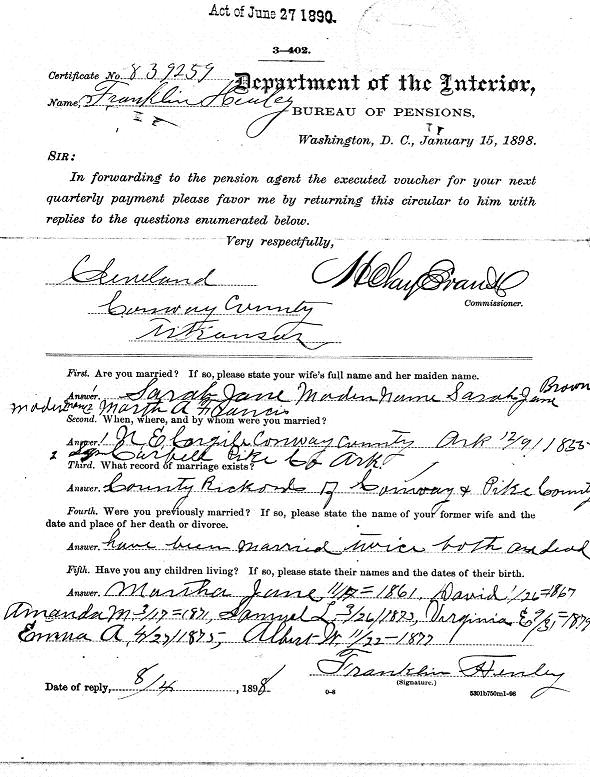 Act of June 27 1890.
3—402.
Certificate No. 839259
Department of the Interior,
Name, Franklin Henley
BUREAU OF PENSIONS,
Washington, D. C., January 15, 1898.
SIR:
In forwarding to the pension agent the executed voucher for your next
quarterly payment please favor me by returning this circular to him with
replies to the questions enumerated below.
Very respectfully,
Cleveland
H Clay Evans
Commissioner.
Conway County
Arkansas
First. Are you married? If so, please state your wife's full name and her maiden name.
Answer. Sarah Jane Maden Name Sarah Jane Brown
Martha A
Second. When, where, and by whom were you married?
Answer. 1 N. E. Cargile Conway County Ark 12/9/1855
2 Pike Co Ark
Third. What record of marriage exists?
Answer. County Rickords of Conway & Pike County
Fourth. Were you previously married? If so, please state the name of your former wife and the
date and place of her death or divorce.
Answer. have been married twice both are dead
Fifth. Have you any children living? If so, please state their names and the dates of their birth.
Answer. Martha Jane = 1861, David 1/26=1867
Amanda M 3/17=1871, Samuel L. 3/26/1873, Virginia E 9/31=1879
Emma A, 4/27/1875, Albert W 11/22-1877
Franklin Henley
(Signature.)
Date of reply, 8/4, 1898
0-8
5301b750m1-98